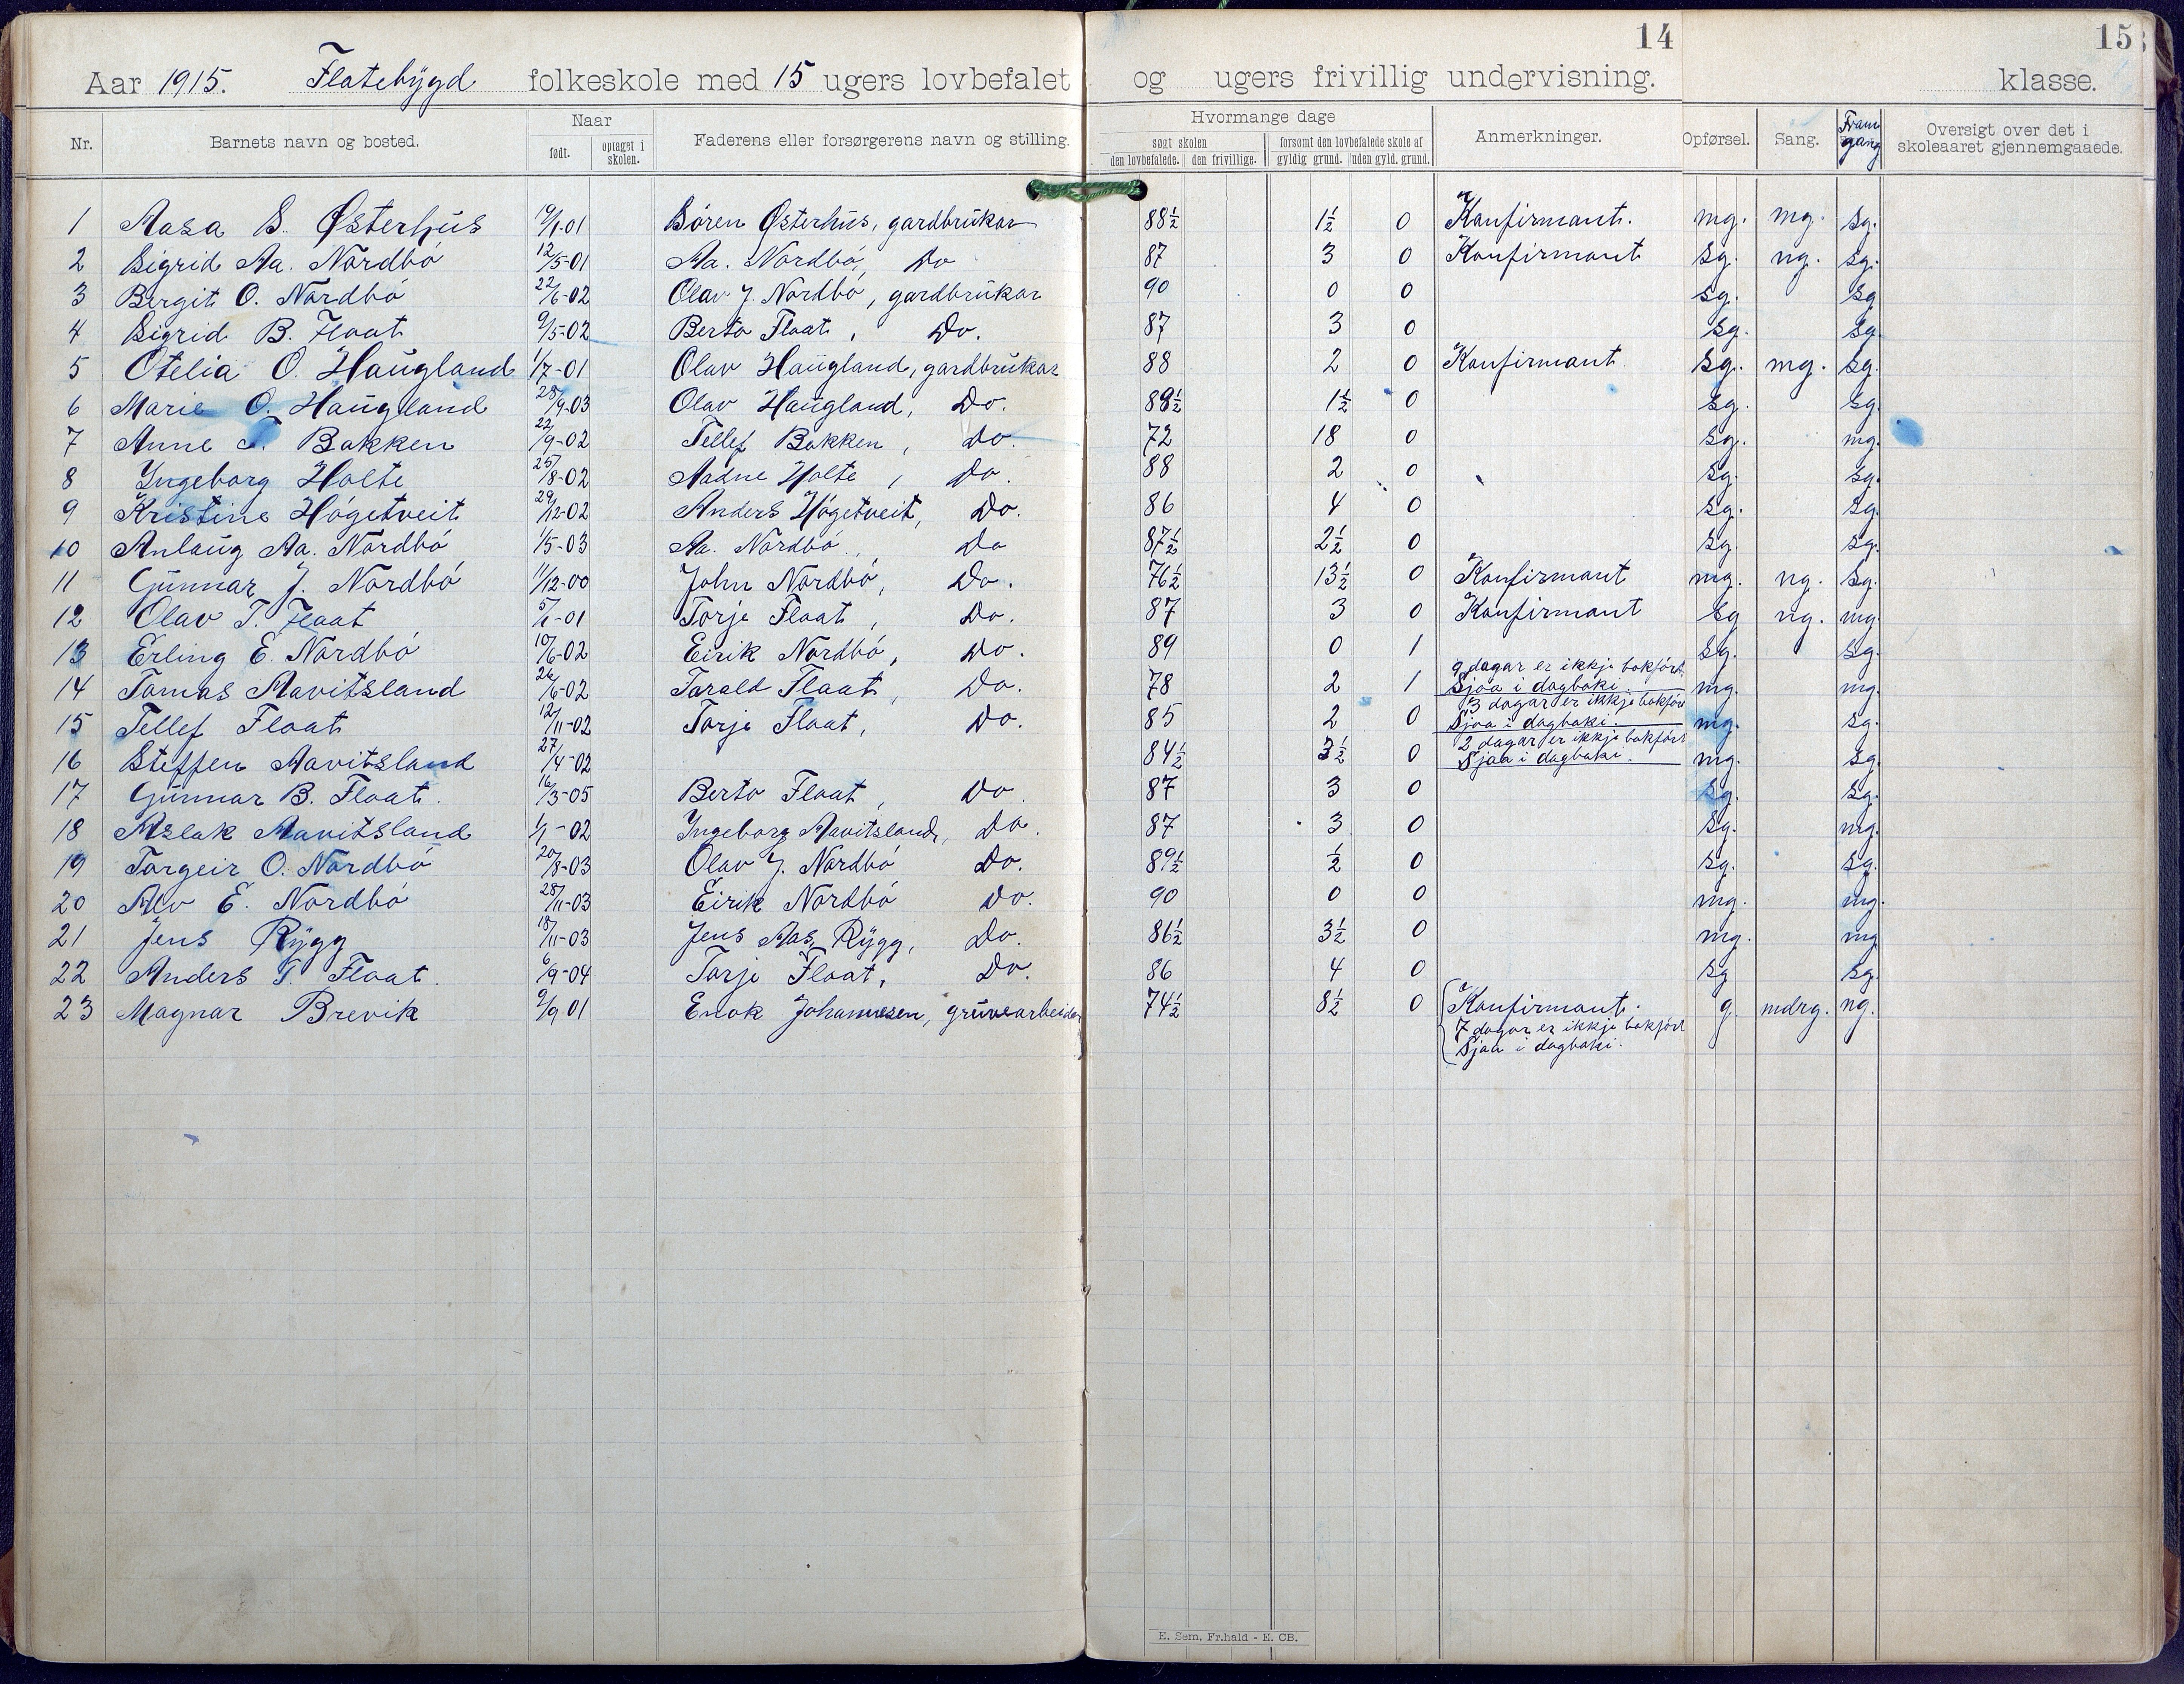 14
15
Aar 1915. Flatebygd folkeskole med 15 ugers lovbefalet og ugers frivillig undervisning. klasse.
Nr. Barnets navn og bosted. Naar født. optaget i skolen. Faderens eller forsørgerens navn og stilling. Hvormange dage søgt skolen den lovbefalede. den frivillige. forsømt den lovbefalede skole af gyldig grund. uden gyld. grund. Anmerkninger. Opførsel. Sang. Framgang Oversigt over det i skoleaaret gjennemgaaede.
1 Aasa S. Østerhus 19/1-01 Sören Østerhus, gardbrukar 88½ 1½ 0 Konfirmant. mg. mg. sg.
2 Sigrid Aa. Nordbö 12/5-01 Aa. Nordbö, Do 87 3 0 Konfirmant sg. ng. sg.
3 Bergit O. Nordbö 22/6-02 Olav J. Nordbö, gardbrukar 90 0 0 sg. sg
4 Sigrid B. Float 9/5-02 Berto Float, Do. 87 3 0 sg. sg.
5 Otelia O. Haugland 1/7-01 Olav Haugland, gardbrukar 88 2 0 Konfirmant sg. mg. sg.
6 Marie O. Haugland 28/9-03 Olav Haugland, Do. 88½ 1½ 0 sg. sg.
7 Anne T. Bakken 22/9-02 Tellef Bakken, do. 72 18 0 sg. mg.
8 Ingeborg Holte 25/8-02 Aadne Holte, Do. 88 2 0 sg. sg.
9 Kristine Högetveit 29/12-02 Anders Högetveit, Do. 86 4 0 sg. sg.
10 Anlaug Aa. Nordbö 1/5-03 Aa. Nordbö, Do 87½ 2½ 0 sg. sg.
11 Gunnar J. Nordbö 11/12-00 John Nordbö, Do. 76½ 13½ 0 Konfirmant mg. ng. sg.
12 Olav T. Float 5/1-01 Torje Float, Do. 87 3 0 Konfirmant sg ng. mg
13 Erling E. Nordbö 10/6-02 Eirik Nordbö, Do. 89 0 1 sg. sg.
14 Tomas Aavitsland 26/6-02 Tarald Flaat, Do. 78 2 1 9 dagar er ikkje bokfört. Sjaa i dagboki. mg. mg.
15 Tellef Float 12/11-02 Torje Float, Do. 85 2 0 3 dagar er ikkje bokfört Sjaa i dagboki. mg. sg.
16 Steffen Aavitsland 27/4-02 84½ 3½ 0 2 dagar er ikkje bokfört Sjaa i dagboki. mg. sg.
17 Gunnar B. Float. 16/3-05 Berto Float, Do. 87 3 0 sg. sg.
18 Aslak Aavitsland 1/1-02 Ingeborg Aavitsland, Do. 87 3 0 sg. mg.
19 Torgeir O. Nordbö 20/8-03 Olav J. Nordbö Do. 89½ ½ 0 sg. sg.
20 Alv E. Nordbö 28/11-03 Eirik Nordbö Do. 90 0 0 mg. mg.
21 Jens Rygg 18/11-03 Jens Aas, Rygg, Do. 86½ 3½ 0 mg. mg
22 Anders T. Float. 6/9-04 Torje Float, Do. 86 4 0 sg sg.
23 Magnar Brevik 9/9 01 Enok Johannesen, gruvearbeider 74½ 8½ 0 Konfirmant. g. mdrg. ng.
7 dagar er ikkje bokfört
Sjaa i dagboki.
E. Sem, Fr.hald - E. CB.